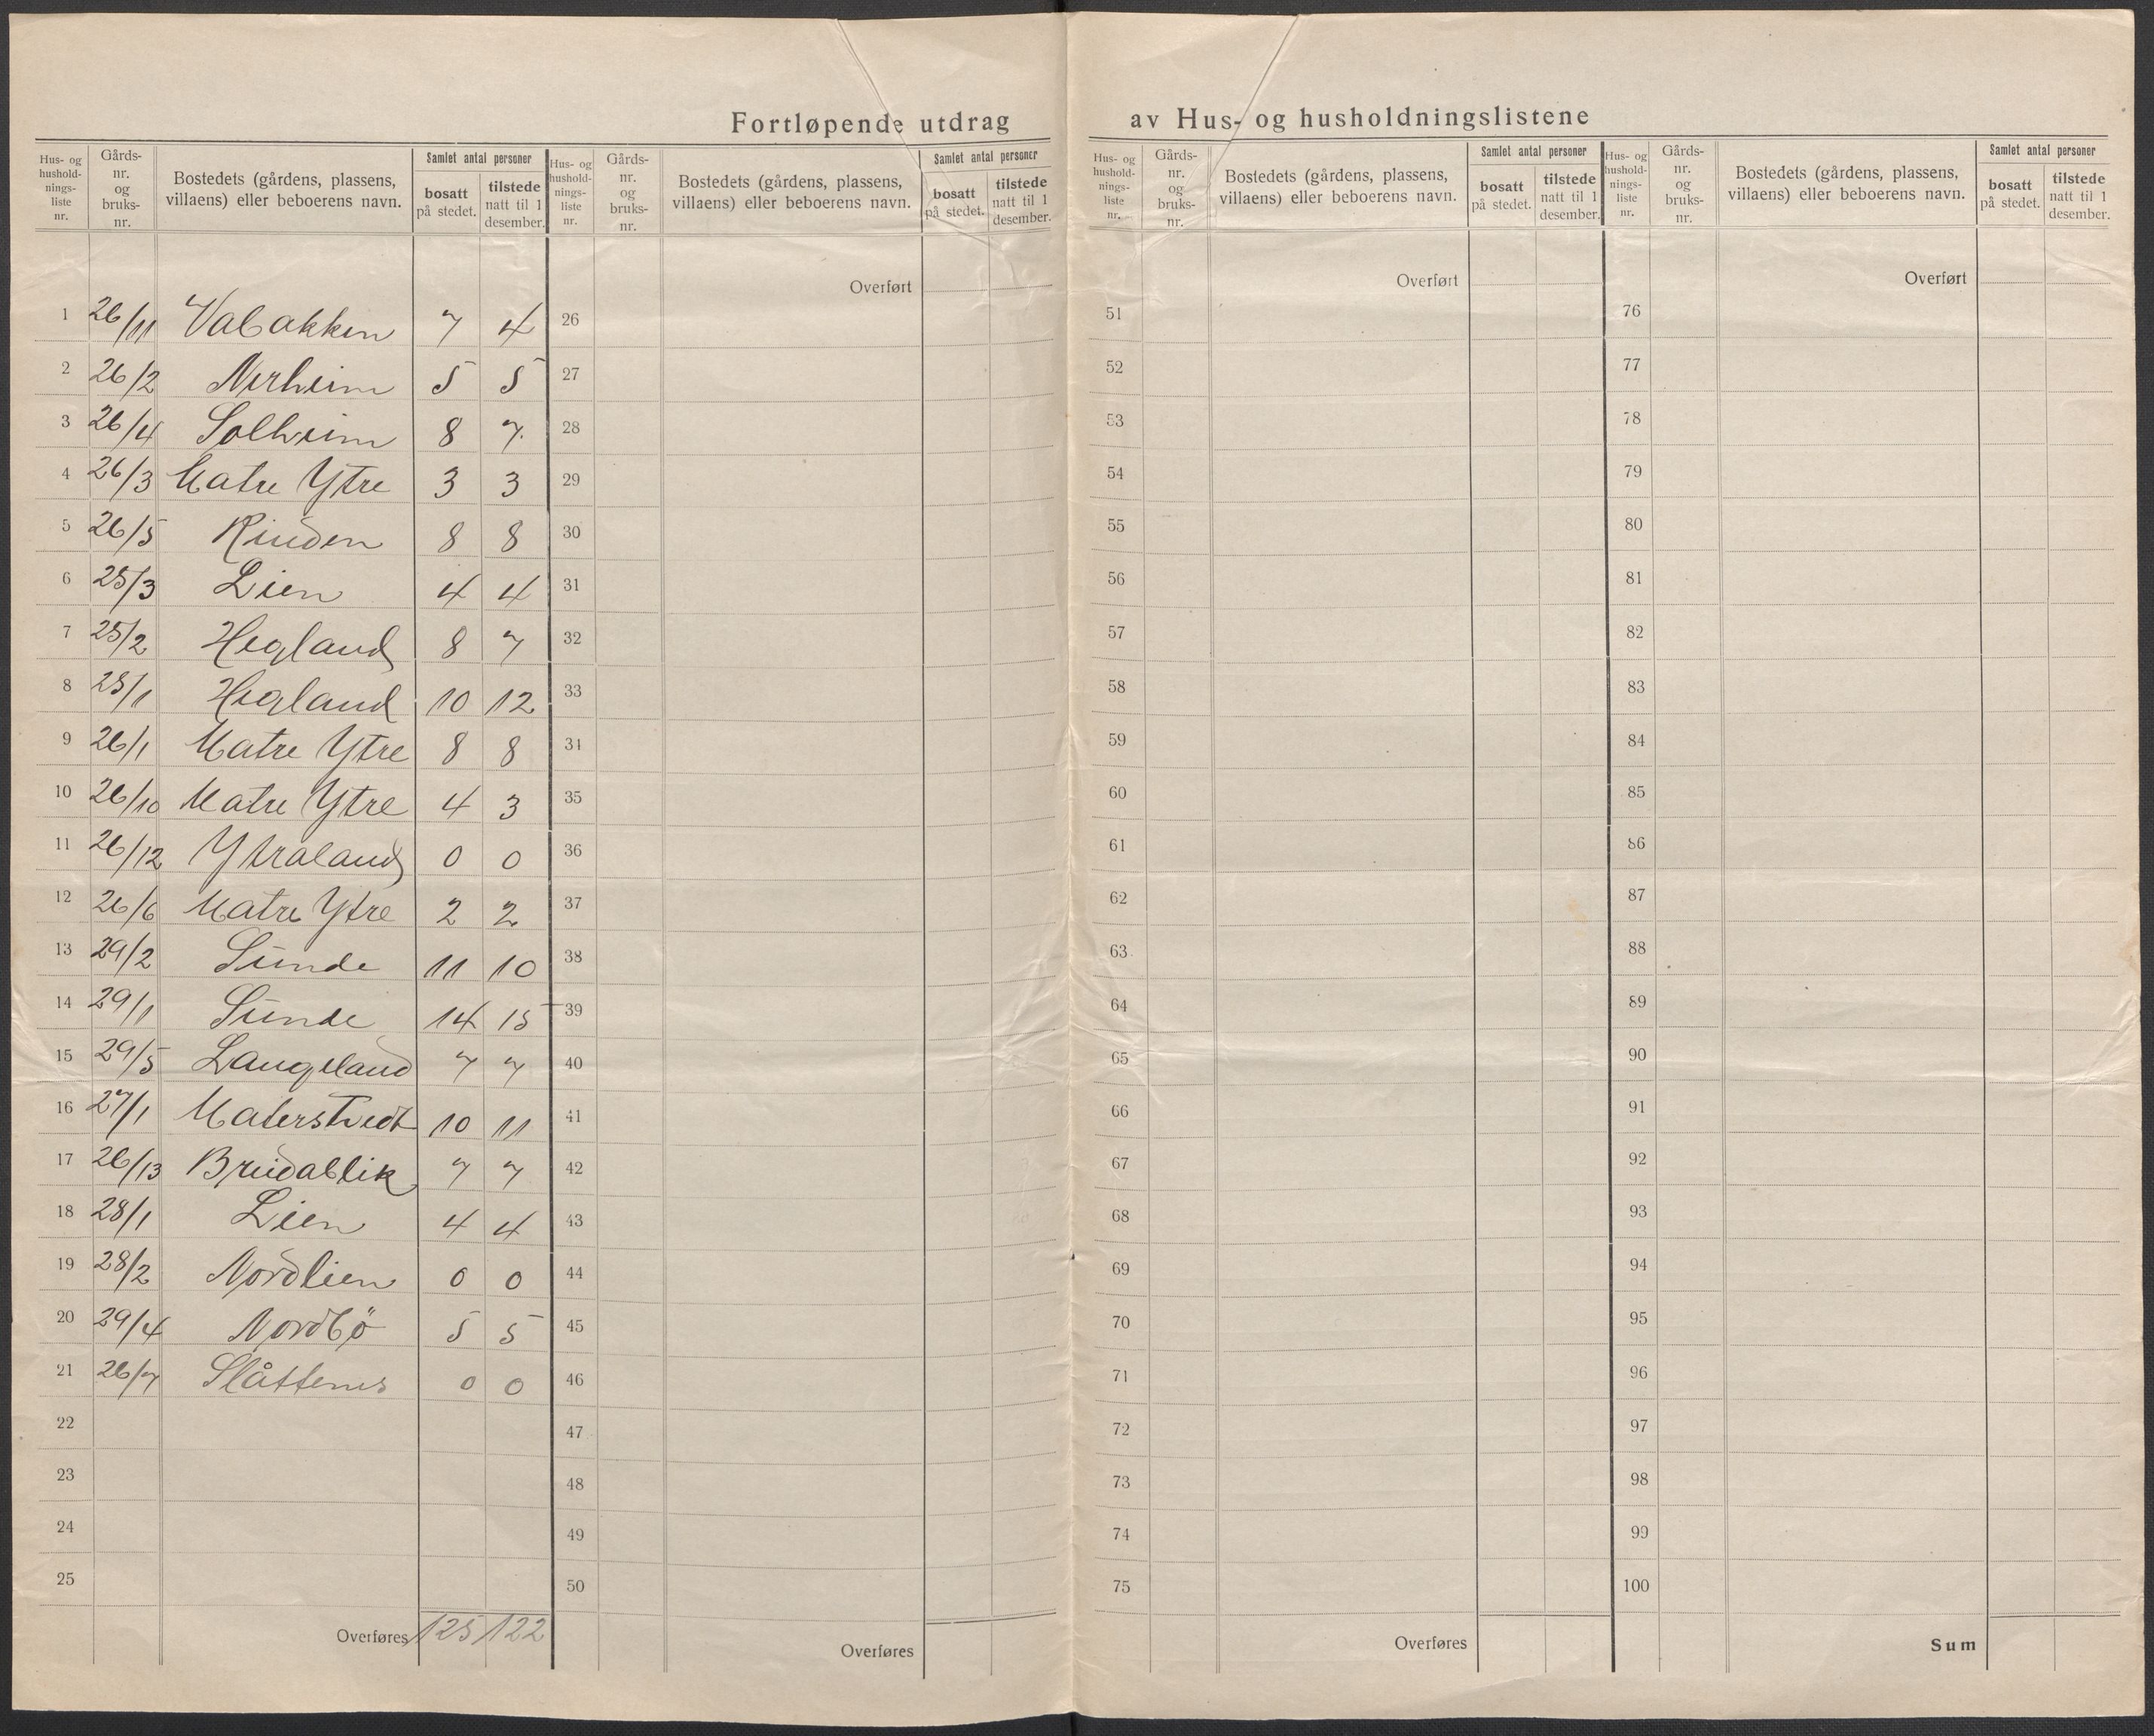 Fortløpende utdrag av Hus- og husholdningslistene
Hus- og hushold- nings- liste nr. | Gårds- nr. og bruks- nr. | Bostedets (gårdens, plassens, villaens) eller beboerens navn. | Samlet antal personer | bosatt på stedet. | tilstede natt til 1 desember.
Hus- og hushold- nings- liste nr. | Gårds- nr. og bruks- nr. | Bostedets (gårdens, plassens, villaens) eller beboerens navn. | Samlet antal personer | bosatt på stedet. | tilstede natt til 1 desember.
Hus- og hushold- nings- liste nr. | Gårds- nr. og bruks- nr. | Bostedets (gårdens, plassens, villaens) eller beboerens navn. | Samlet antal personer | bosatt på stedet. | tilstede natt til 1 desember.
Hus- og hushold- nings- liste nr. | Gårds- nr. og bruks- nr. | Bostedets (gårdens, plassens, villaens) eller beboerens navn. | Samlet antal personer | bosatt på stedet. | tilstede natt til 1 desember.
1 26/11 Vabakken 7 4
2 26/2 Nerheim 5 5
3 26/4 Solheim 8 7
4 26/3 Matre Ytre 3 3
5 26/5 Rinden 8 8
6 25/3 Lien 4 4
7 25/2 Hegland 8 7
8 25/1 Hegland 10 12
9 26/1 Matre Ytre 8 8
10 26/10 Matre Ytre 4 3
11 26/12 Ytraland 0 0
12 26/6 Matre Ytre 2 2
13 29/2 Sunde 11 10
14 29/1 Sunde 14 15
15 29/5 Langeland 7 7
16 27/1 Matersтvedt 10 11
17 26/13 Breidablik 7 7
18 28/1 Lien 4 4
19 28/2 Nordlien 0 0
20 29/4 Nordbö 5 5
21 26/7 Slåttenes 0 0
22
23
24
25
Overføres 125 122
Overført
26
27
28
29
30
31
32
33
34
35
36
37
38
39
40
41
42
43
44
45
46
47
48
49
50
Overføres
Overført
51
52
53
54
55
56
57
58
59
60
61
62
63
64
65
66
67
68
69
70
71
72
73
74
75
Overføres
Overført
76
77
78
79
80
81
82
83
84
85
86
87
88
89
90
91
92
93
94
95
96
97
98
99
100
Sum